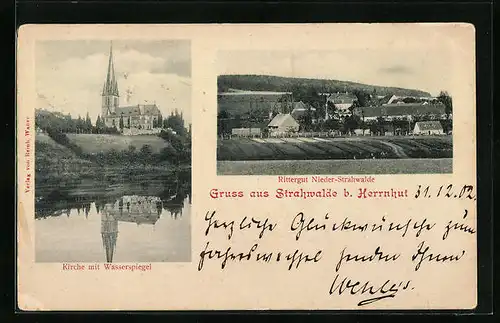 Verlag von Bernh. Wauer.
Rittergut Nieder-Strahwalde
Gruss aus Strahwalde b. Herrnhut
31.12.02
Herzliche Glückwünsche zum
Jahreswechsel senden Ihnen
Kirche mit Wasserspiegel